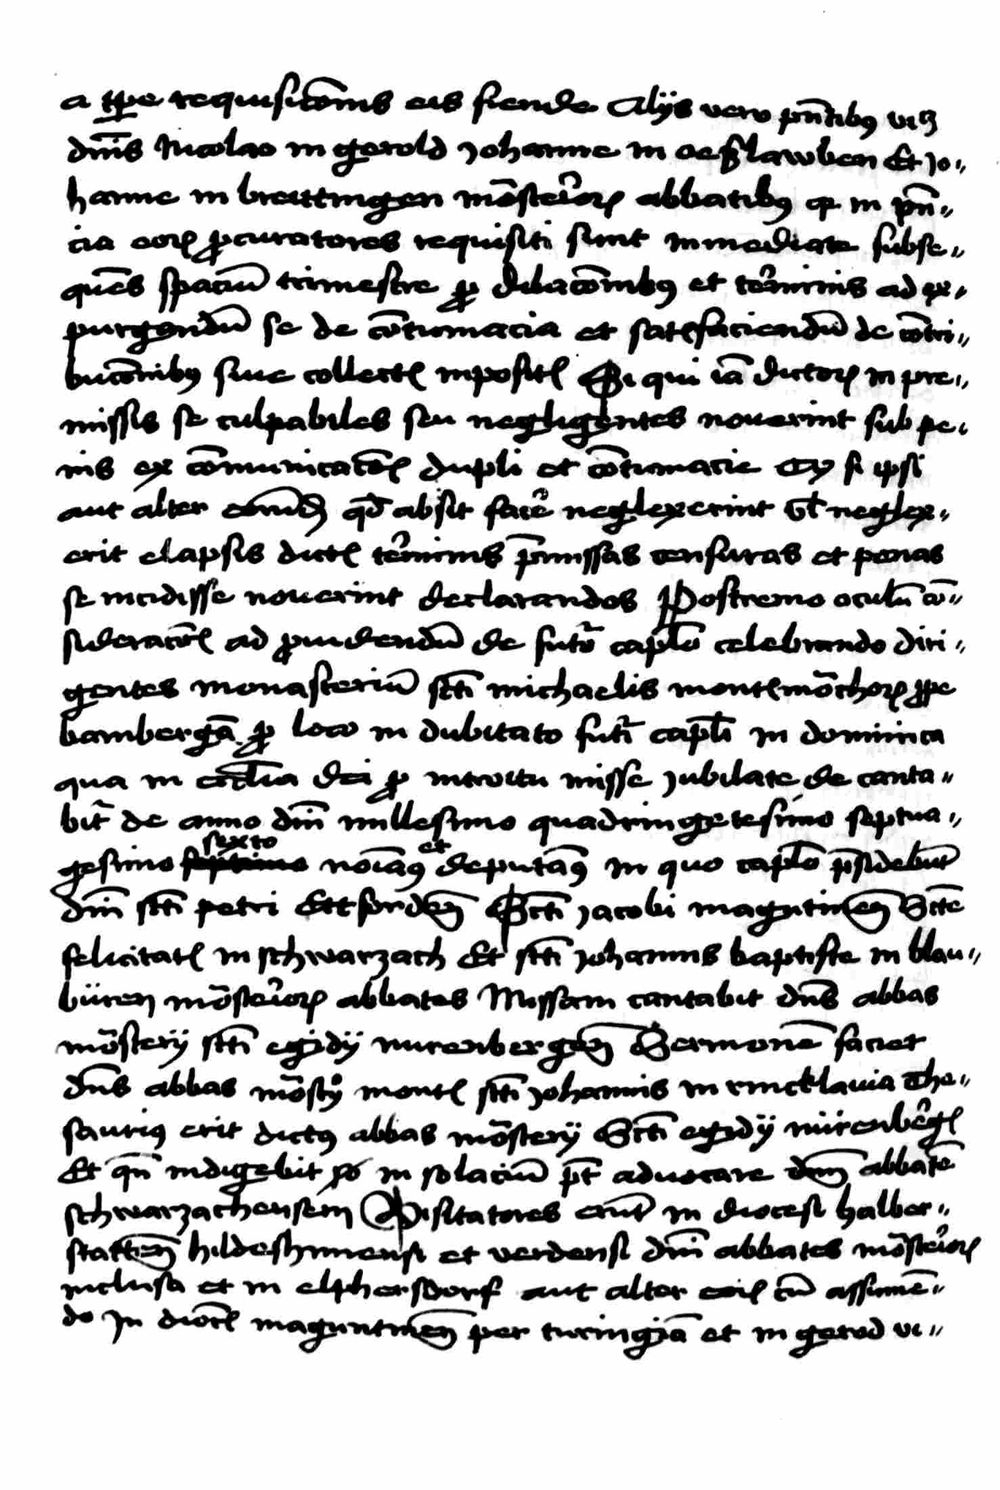 a tp̄e requisic̄onis eis fiende Alijs vero pn̄tibus vicz
dn̄is Nicolao in gerold Johanne in Oeslawben Et Jo-
hanne in breittingen mōsterior abbatibus qz in pn̄-
cia eor procuratores requisiti sunt inmediate subse-
quēs spaciū trimestre pro dilac̄onibus et terminis ad ex-
purgendū se de contumacia et satisfaciendū de contri-
buc̄onibus siue collectis inpositis Si qui iā dictor in pre-
missis se culpabiles seu negligentes nouerint sub pe-
nis excōmunicac̄ois dupli et contumacie si ipsi
aut alter eorund qd absit facere neglexerint vel neglex-
erit elapsis dictis terminis premissas censuras et penas
se incidisse nouerint declarandos Postremo oculū con-
siderac̄ois ad prouidendū de futuro caplo celebrando diri-
gentes monasteriū scti michaelis montis mōchor prope
bambergā pro loco in dubitato futuri capli in dominica
qua in eccl̄ia dei pro introitu misse Jubilate de canta-
bitur de anno dn̄i millesimo quadringetesimo septua-
gesimo sexto noīaus et deputaus in quo caplo presidebūt
dn̄i scti petri Erffordeñ Scti Jacobi magūtineñ Scte
felicitatis in schwarzach Et scti Johannis baptiste in blau-
büren mōsterior abbates Missam cantabit dns abbas
mōsterij scti egidij nurenbergeñ Sermonē faciet
dns abbas mōsterij montis scti Johannis in rincklauia The-
saurius erit dictus abbas mōsterij Scti egidij nürenberg
Et qn̄ indigebit in solaciū pt aduocare dnm abbatē
schwarzachensem Visitatores erūt in diocesi halber-
statteñ hildeshimensi et verdensi dn̄i abbates mōsterior
inclusa et in elphersdorf aut alter eor cū assumē-
do In dioc̄ magūtineñ per turingiā et in gerod vi-